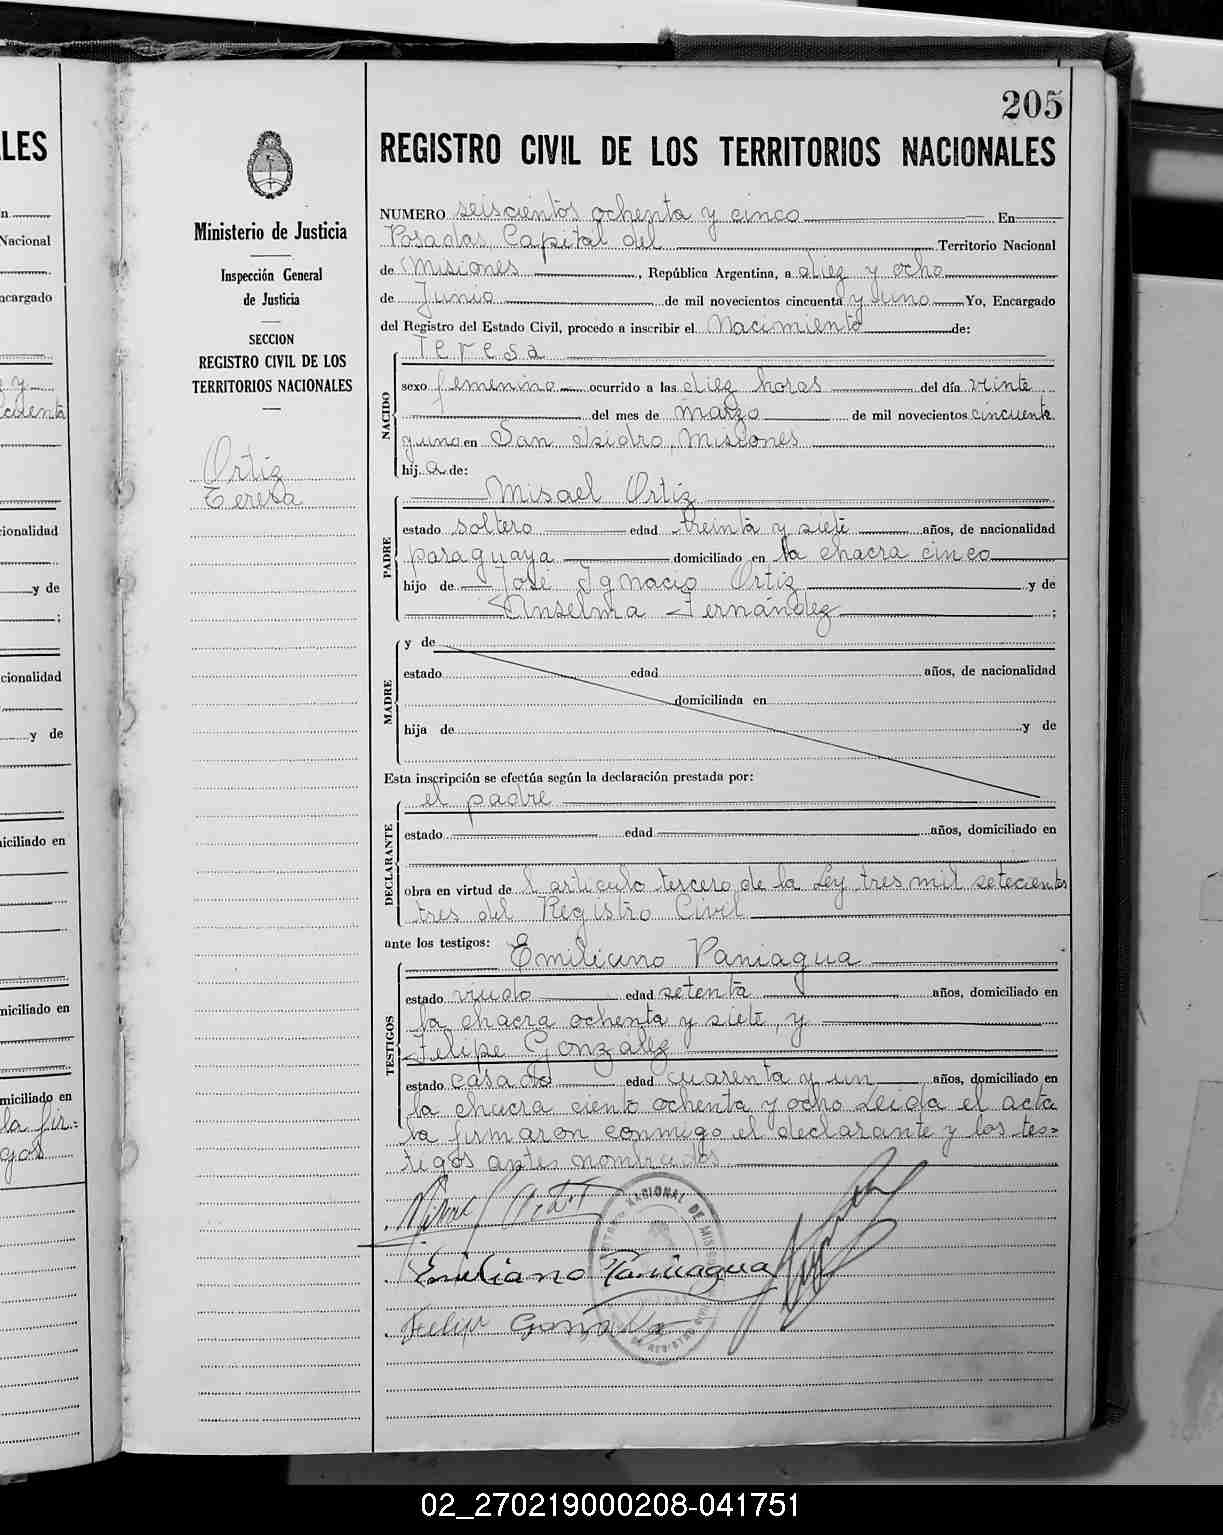 205
REGISTRO CIVIL DE LOS TERRITORIOS NACIONALES
Ministerio de Justicia
Inspección General
de Justicia
SECCION
REGISTRO CIVIL DE LOS
TERRITORIOS NACIONALES
Ortiz
Teresa
NUMERO seiscientos ochenta y cinco En
Posadas, Capital del Territorio Nacional
de Misiones, República Argentina, a diez y ocho
de Junio de mil novecientos cincuenta y uno Yo, Encargado
del Registro del Estado Civil, procedo a inscribir el Nacimiento de:
NACIDO
Teresa
sexo femenino ocurrido a las diez horas del día veinte
del mes de marzo de mil novecientos cincuenta
y uno en San Isidro, Misiones
hij a de:
PADRE
Misael Ortiz
estado soltero edad treinta y siete años, de nacionalidad
paraguaya domiciliado en la chacra cinco
hijo de José Ignacio Ortiz y de
Anselma Fernández ;
MADRE
y de
estado edad años, de nacionalidad
domiciliada en
hija de y de
Esta inscripción se efectúa según la declaración prestada por:
DECLARANTE
el padre
estado edad años, domiciliado en
obra en virtud de l artículo tercero de la Ley tres mil setecientos
tres del Registro Civil
ante los testigos:
TESTIGOS
Emiliano Paniagua
estado viudo edad setenta años, domiciliado en
la chacra ochenta y siete, y
Felipe Gonzalez
estado casado edad cuarenta y un años, domiciliado en
la chacra ciento ochenta y ocho Leida el acta
la firmaron conmigo el declarante y los tes=
tigos antes nombrados
Misael Ortiz
Emiliano Paniagua
Felipe Gonzalez
LES
Nacional
cargado
cionalidad
y de
;
cionalidad
y de
iciliado en
miciliado en
miciliado en
la fir=
gos
02_270219000208-041751